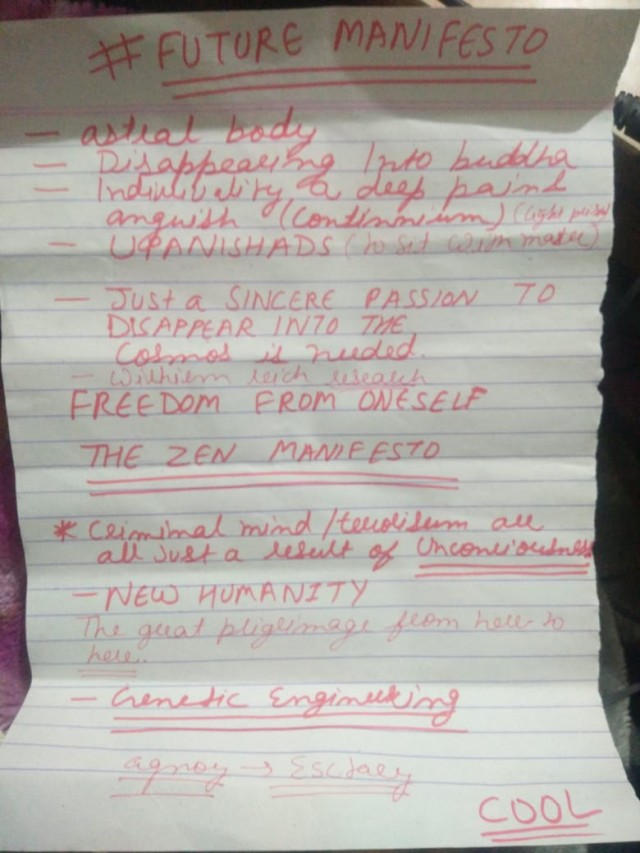 # FUTURE MANIFESTO
- astral body
- Disappearing Into buddha
- Indiviuality a deep paind
anguish (continnium) (light
- UPANISHADS (to sit with master)
- Just a SINCERE PASSION TO
DISAPPEAR INTO THE
Cosmos is needed.
- Withiem reich research
FREEDOM FROM ONESELF
THE ZEN MANIFESTO
* Criminal mind / terrolisum all
all just a result of Unconciousness
- NEW HUMANITY
The great pligrimage from here to
here.
- Genetic Engineering
agnoy → Esctacy
COOL